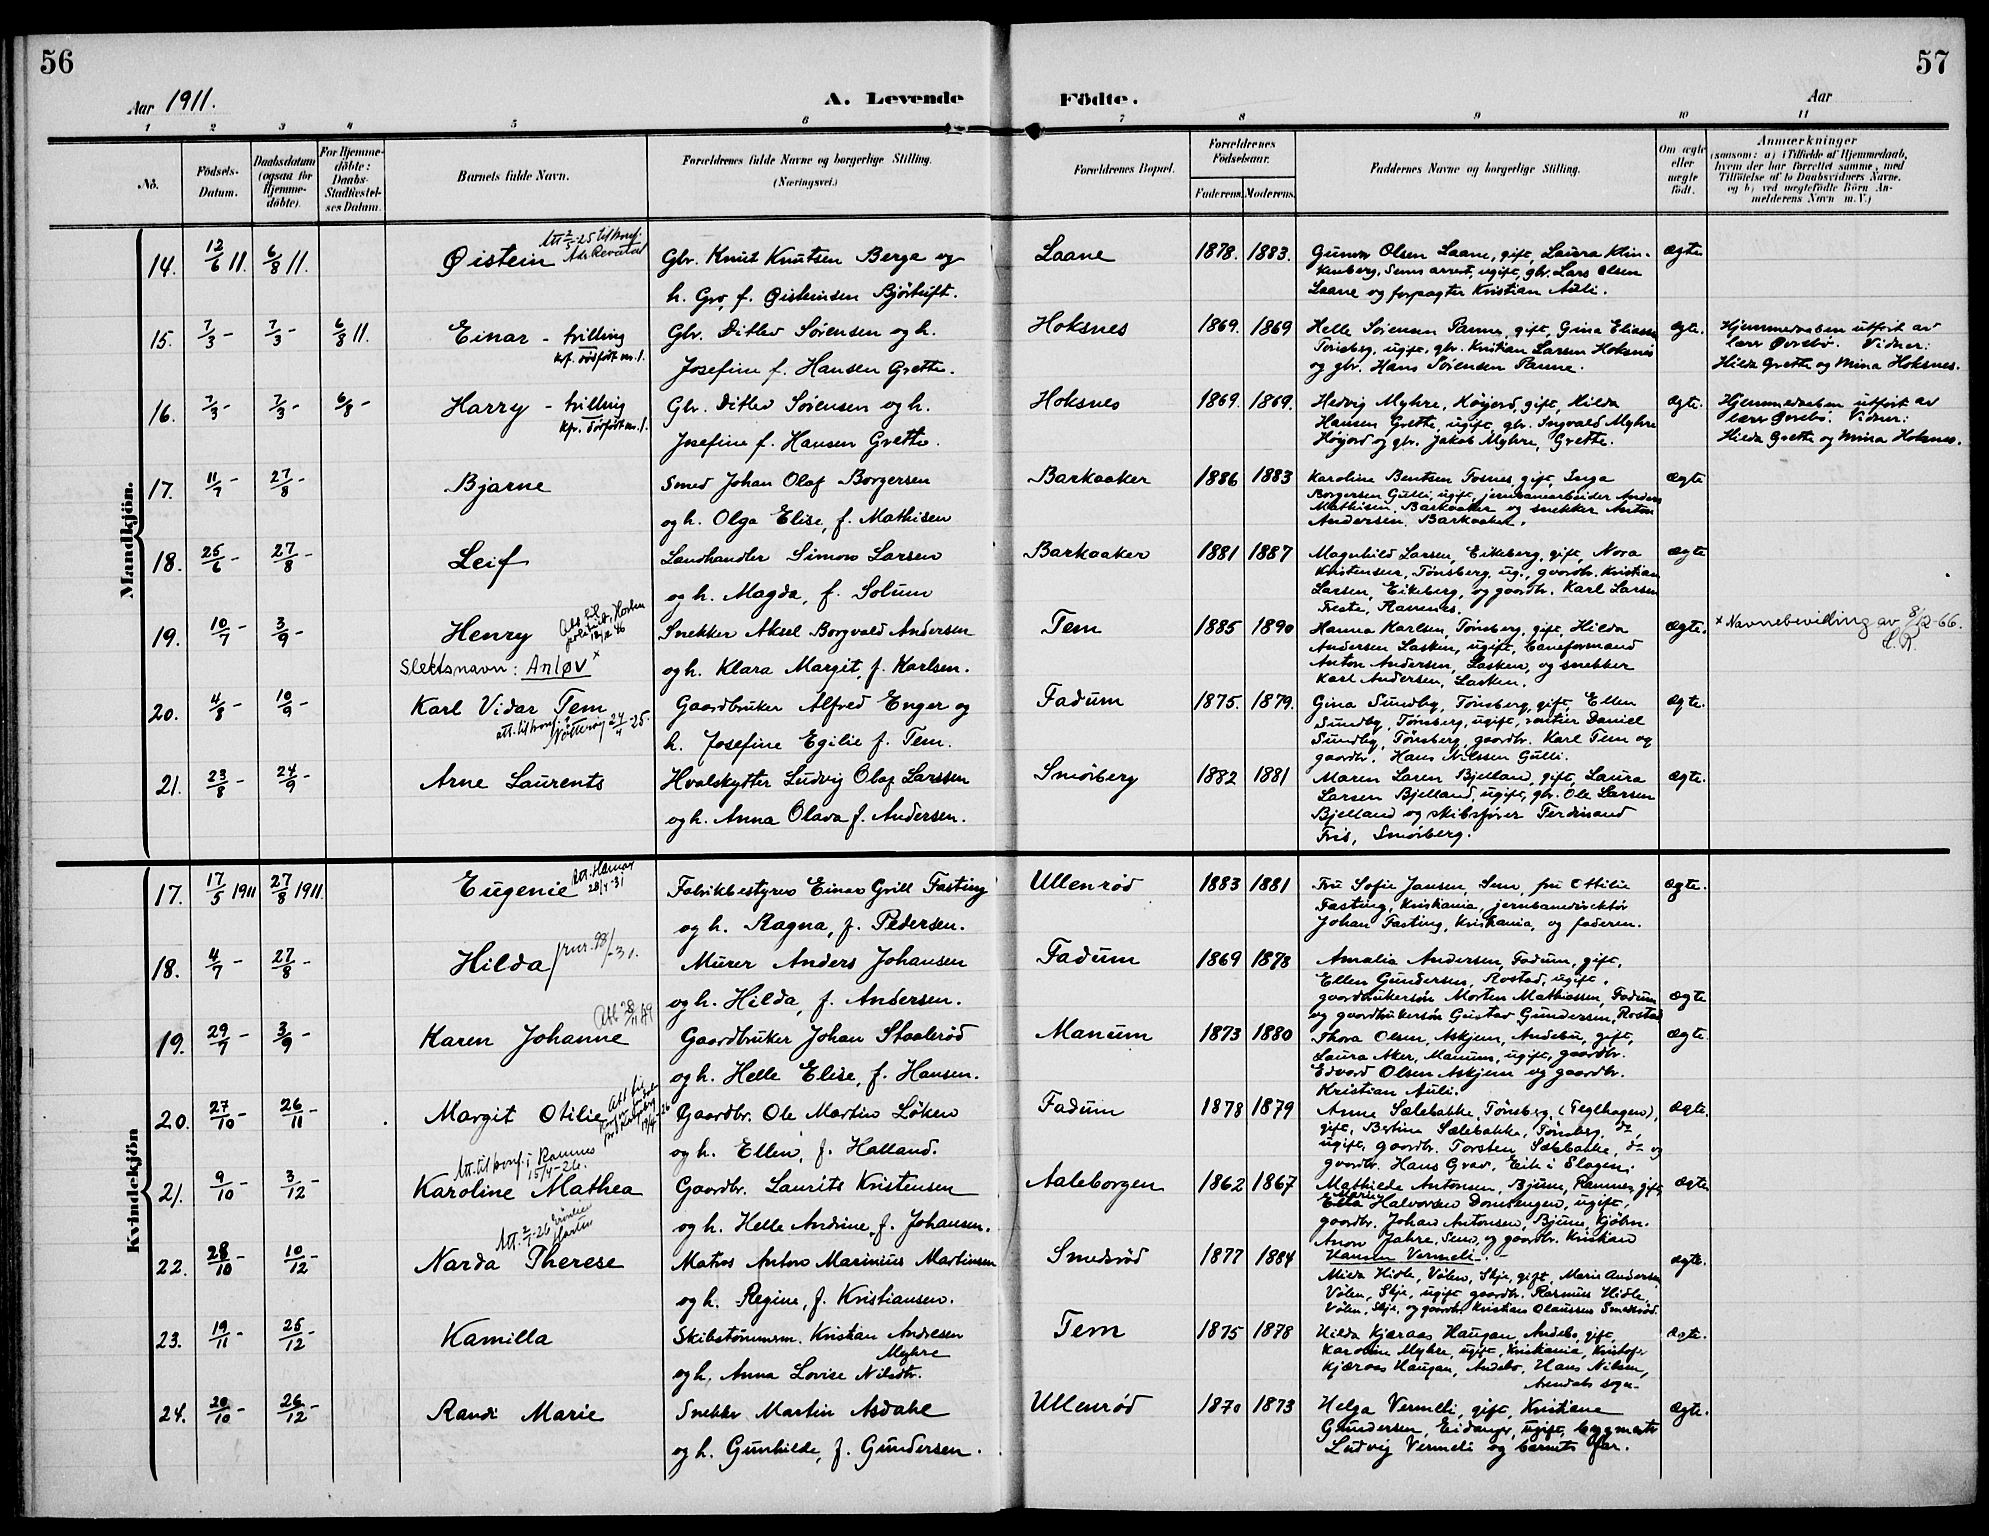 56
57
Aar 1911.
A. Levende Födte.
Aar
1 2 3 4 5 6 7 8 9 10 11
No.
Födsels-Datum.
Daabsdatum (ogsaa for Hjemme-döbte).
For Hjemme-döbte: Daabs-Stadfæstel-ses Datum.
Barnets fulde Navn.
Forældrenes fulde Navne og borgerlige Stilling. (Næringsvei.)
Forældrenes Bopæl.
Forældrenes Födselsaar.
Faderens. Moderens.
Faddernes Navne og borgerlige Stilling.
Om ægte eller uægte födt.
Anmærkninger
(saasom: a) i Tilfælde af Hjemmedaab, hvem der har forrettet samme, med Tilföielse af to Daabsvidners Navne, og b) ved uægtefödte Börn Anmelderens Navn m. V.)
Mandkjön.
14. 12/6 11. 6/8 11. Øistein
Gbr. Knut Knutsen Berge og
h. Gro, f. Øisteinsen Bjørtuft.
Laane 1878. 1883.
Gunvor Olsen Laane, gift, Laura Klin-
kenberg, Sems arrest, ugift, gbr. Lars Olsen
Laane og forpagter Kristian Auli.
ægte.
15. 7/3 - 7/3 - 6/8 11. Einar - trilling
kfr. dødfødt nr. 1.
Gbr. Ditlev Sørensen og h.
Josefine f. Hansen Grette.
Hoksnes 1869. 1869
Helle Sørensen Ramne, gift, Gina Eliassen
Tønsberg, ugift, gbr. Kristian Larsen Hoksnes
og gbr. Hans Sørensen Ramne.
ægte.
Hjemmedaaben utført av
lærer Øvrebø. Vidner:
Hilda Grette og Mina Hoksnes.
16. 7/3 - 7/3 - 6/8 - Harry - trilling
kfr. dødfødt nr. 1.
Gbr. Ditlev Sørensen og h.
Josefine f. Hansen Grette.
Hoksnes 1869. 1869.
Hedvig Myhre, Høijord, gift, Hilda
Hansen Grette, ugift, gbr. Ingvald Myhre
Høijord og gbr. Jakob Myhre, Grette.
ægte.
Hjemmedaaben utført av
lærer Øvrebø. Vidner:
Hilda Grette og Mina Hoksnes.
17. 11/7 - 27/8 - Bjarne
Smed Johan Olaf Borgersen
og h. Olga Elise, f. Mathisen
Barkaaker 1886 1883
Karoline Bentsen Fosnes, gift, Inga
Borgersen Gulli, ugift, jernbanearbeider Anders
Mathisen, Barkaaker og snekker Anton
Andersen Barkaaker.
ægte
18. 25/6 - 27/8 - Leif
Landhandler Simon Larsen
og h. Magda, f. Solum
Barkaaker 1881 1887
Magnhild Larsen, Eikeberg, gift, Nora
Kristensen, Tønsberg, ug., gaardbr. Kristian
Larsen, Eikeberg, og gaardbr. Karl Larsen
Freste, Ramnes.
ægte
19. 10/7 - 3/9 - Henry
Slektsnavn: Anløv x
Snekker Aksel Borgvald Andersen
og h. Klara Margit, f. Karlsen.
Tem 1885 1890
Hanna Karlsen, Tønsberg, gift, Hilda
Andersen Lasken, ugift, baneformand
Anton Andersen, Lasken, og snekker
Karl Andersen, Lasken.
ægte.
x Navnebevilling av 8/12-66.
20. 4/8 - 10/9 - Karl Vidar Tem
att. til konf. i Nøtterøy 24/4-25.
Gaardbruker Alfred Enger og
h. Josefine Egilie f. Tem.
Fadum 1875. 1879.
Gina Sundby, Tønsberg, gift, Ellen
Sundby, Tønsberg, ugift, rentier Daniel
Sundby, Tønsberg, gaardbr. Karl Tem og
gaardbr. Hans Nilssen Gulli.
ægte.
21. 23/8 - 24/9 - Arne Laurents
Hvalskytter Ludvig Olaf Larssen
og h. Anna Olava f. Andersen.
Smørberg 1882 1881
Maren Laren Bjelland, gift, Laura
Larsen Bjelland, ugift, gbr. Ole Larsen
Bjelland og skibsfører Ferdinand
Fris, Smørberg.
ægte.
Kvindekjön
17. 17/5 1911 27/8 1911. Eugenie
att. Hamar 28/4-31
Fabrikbestyrer Einar Grill Fasting
og h. Ragna, f. Pedersen.
Ullenrød 1883 1881
Fru Sofie Jansen, Sem, fru Ottilie
Fasting, Kristiania, jernbanedirektør
Johan Fasting, Kristiania, og faderen.
ægte.
18. 4/7 - 27/8 - Hilda
Murer Anders Johansen
og h. Hilda, f. Andersen.
Fadum 1869 1878
Amalia Andersen, Fadum, gift,
Ellen Gundersen, Rostad, ugift,
gaardbrukersøn Morten Mathiassen, Fadum
og gaardbrukersøn Gustav Gundersen, Rostad
ægte
19. 29/7 - 3/9 - Karen Johanne
Gaardbruker Johan Staalerød
og h. Helle Elise, f. Hansen.
Manum 1873 1880
Thora Olsen, Askjem, Andebu, gift,
Laura Aker, Manum, ugift, gaardbr.
Edvard Olsen Askjem og gaardbr.
Kristian Auli.
ægte.
20. 27/10 - 26/11 - Margit Otilie
Gaardbr. Ole Martin Løken
og h. Ellen, f. Halland.
Fadum 1878 1879
Anna Sælebakke, Tønsberg, (Teglhagen),
gift, Bertine Sælebakke, Tønsberg, do
ugift, gaardbr. Torsten Sælebakke, do og
gaardbr. Hans Grav, Eik i Slagen.
ægte.
21. 9/10 - 3/12 - Karoline Mathea
Att. til konf. i Ramnes 15/4-26.
Gaardbr. Laurits Kristensen
og h. Helle Andrine f. Johansen.
Aaleborgen 1862 1867
Mathilde Antonsen, Bjune, Ramnes, gift,
Marie
Halvorsen ugift,
gaardbr. Johan Antonsen, Bjune,
Jahre, Sem, og gaardbr. Kristian
Hansen Vermeli.
ægte
22. 28/10 - 10/12 - Narda Therese
Matros Anton Marinius Martinsen
og h. Regine, f. Kristiansen.
Smedsrød 1877 1884
Milda Hidle, Vølen, Skje, gift, Marie Andersen
Vølen, Skje, ugift gaardbr. Rasmus Hidle,
Vølen, Skje, og gaardbr. Kristian Olaussen Smedsrød.
ægte.
23. 19/11 - 25/12 - Kamilla
Skibstømmerm. Kristian Andresen
Myhre
og h. Anna Lovise Nilsdtr.
Tem 1875 1878
Hilda Kjæraas Haugan, Andebo, gift,
Karoline Myhre, ugift, Kristiania, Kristofer
Kjæraas Haugan, Andebo, Hans Nilsen,
Arendals sogn
ægte.
24. 20/10 - 26/12 - Randi Marie
Snekker Martin Asdahl
og h. Gunhilde, f. Gundersen.
Ullenrød 1870 1873
Helga Vermeli, gift, Kristiane
Gundersen, Eidanger, ugift, bygmester
Ludvig Vermeli og barnets far.
ægte.